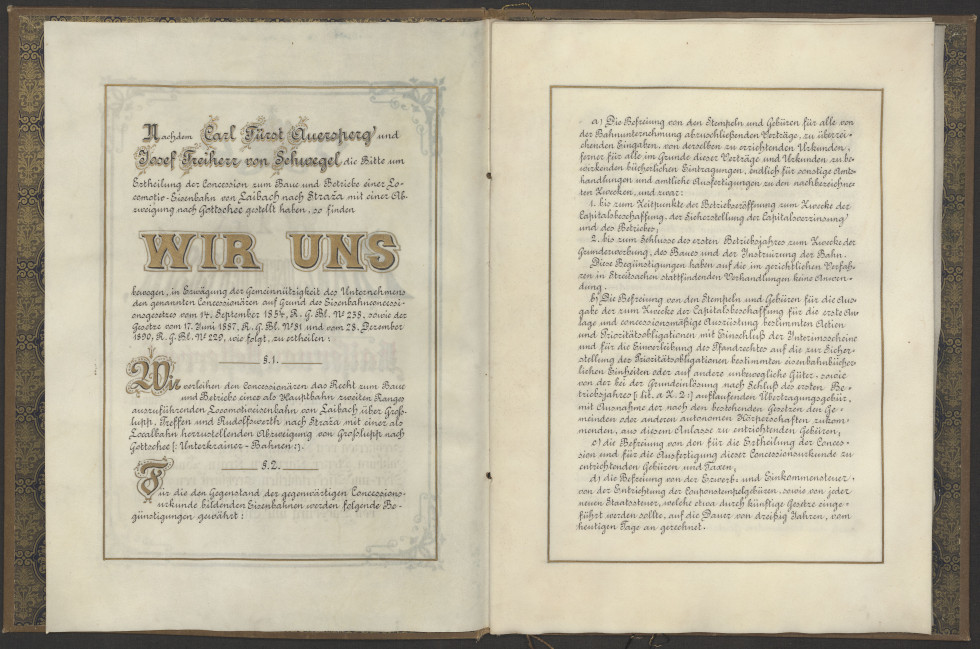 Nachdem Carl Fürst Auersperg und
Josef Freiherr von Schwegel, die Bitte um
Ertheilung der Concession zum Baue und Betriebe einer Lo-
comotiv-Eisenbahn von Laibach nach Straža mit einer Ab-
zweigung nach Gottschee gestellt haben, so finden
WIR UNS
bewogen, in Erwägung der Gemeinnützigkeit des Unternehmens
den genannten Concessionären auf Grund des Eisenbahnconcessi-
onsgesetzes vom 14. September 1854, R. G. Bl. Nº 238, sowie der
Gesetze vom 17. Juni 1887, R. G. Bl. Nº 81 und vom 28. Dezember
1890, R. G. Bl. Nº 229, wie folgt, zu ertheilen:
§. 1.
Wir verleihen den Concessionären das Recht zum Baue
und Betriebe einer als Hauptbahn zweiten Ranges
auszuführenden Locomotiveisenbahn von Laibach über Groß-
lupp, Treffen und Rudolfswerth nach Straža mit einer als
Localbahn herzustellenden Abzweigung von Großlupp nach
Gottschee [: Unterkrainer-Bahnen :].
§. 2.
Für die den Gegenstand der gegenwärtigen Concessions-
urkunde bildenden Eisenbahnen werden folgende Be-
günstigungen gewährt:
a) Die Befreiung von den Stempeln und Gebüren für alle von
der Bahnunternehmung abzuschließenden Verträge, zu überrei-
chenden Eingaben, von derselben zu errichtenden Urkunden,
ferner für alle im Grunde dieser Verträge und Urkunden zu be-
wirkenden bücherlichen Eintragungen, endlich für sonstige Amts-
handlungen und amtliche Ausfertigungen zu den nachbezeichne-
ten Zwecken, und zwar:
1. bis zum Zeitpunkte der Betriebseröffnung zum Zwecke der
Capitalsbeschaffung, der Sicherstellung der Capitalsverzinsung
und des Betriebes;
2. bis zum Schlusse des ersten Betriebsjahres zum Zwecke der
Grunderwerbung, des Baues und der Instruirung der Bahn.
Diese Begünstigungen haben auf die im gerichtlichen Verfah-
ren in Streitsachen stattfindenden Verhandlungen keine Anwen-
dung.
b) Die Befreiung von den Stempeln und Gebüren für die Aus-
gabe der zum Zwecke der Capitalsbeschaffung für die erste An-
lage und concessionsmäßige Ausrüstung bestimmten Actien
und Prioritätsobligationen mit Einschluß der Interimsscheine
und für die Einverleibung des Pfandrechtes auf die zur Sicher-
stellung der Prioritätsobligationen bestimmten eisenbahnbücher-
lichen Einheiten oder auf andere unbewegliche Güter, sowie
von der bei der Grundeinlösung nach Schluß des ersten Be-
triebsjahres [: lit. a Z. 2 :] auflaufenden Übertragungsgebür,
mit Ausnahme der nach den bestehenden Gesetzen den Ge-
meinden oder anderen autonomen Körperschaften zukom-
menden, aus diesem Anlasse zu entrichtenden Gebüren;
c) die Befreiung von den für die Ertheilung der Conces-
sion und für die Ausfertigung dieser Concessionsurkunde zu
entrichtenden Gebüren und Taxen;
d) die Befreiung von der Erwerb- und Einkommensteuer,
von der Entrichtung der Couponstempelgebüren, sowie von jeder
neuen Staatssteuer, welche etwa durch künftige Gesetze einge-
führt werden sollte, auf die Dauer von dreißig Jahren, vom
heutigen Tage an gerechnet.